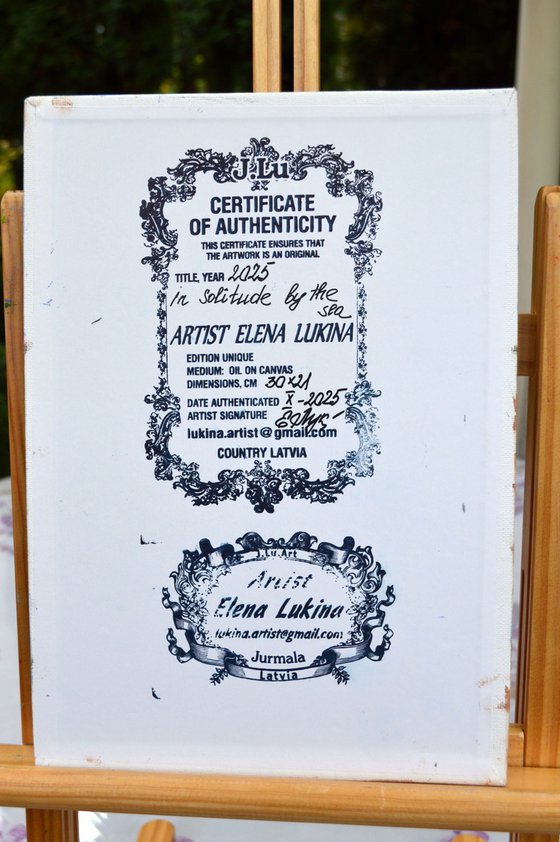 J.Lu
CERTIFICATE
OF AUTHENTICITY
THIS CERTIFICATE ENSURES THAT
THE ARTWORK IS AN ORIGINAL
TITLE, YEAR 2025
in solitude by the
sea
ARTIST ELENA LUKINA
EDITION UNIQUE
MEDIUM: OIL ON CANVAS
DIMENSIONS, CM 30x21
DATE AUTHENTICATED X - 2025
ARTIST SIGNATURE
lukina.artist@gmail.com
COUNTRY LATVIA
J.Lu.Art
Artist
Elena Lukina
lukina.artist@gmail.com
Jurmala
Latvia